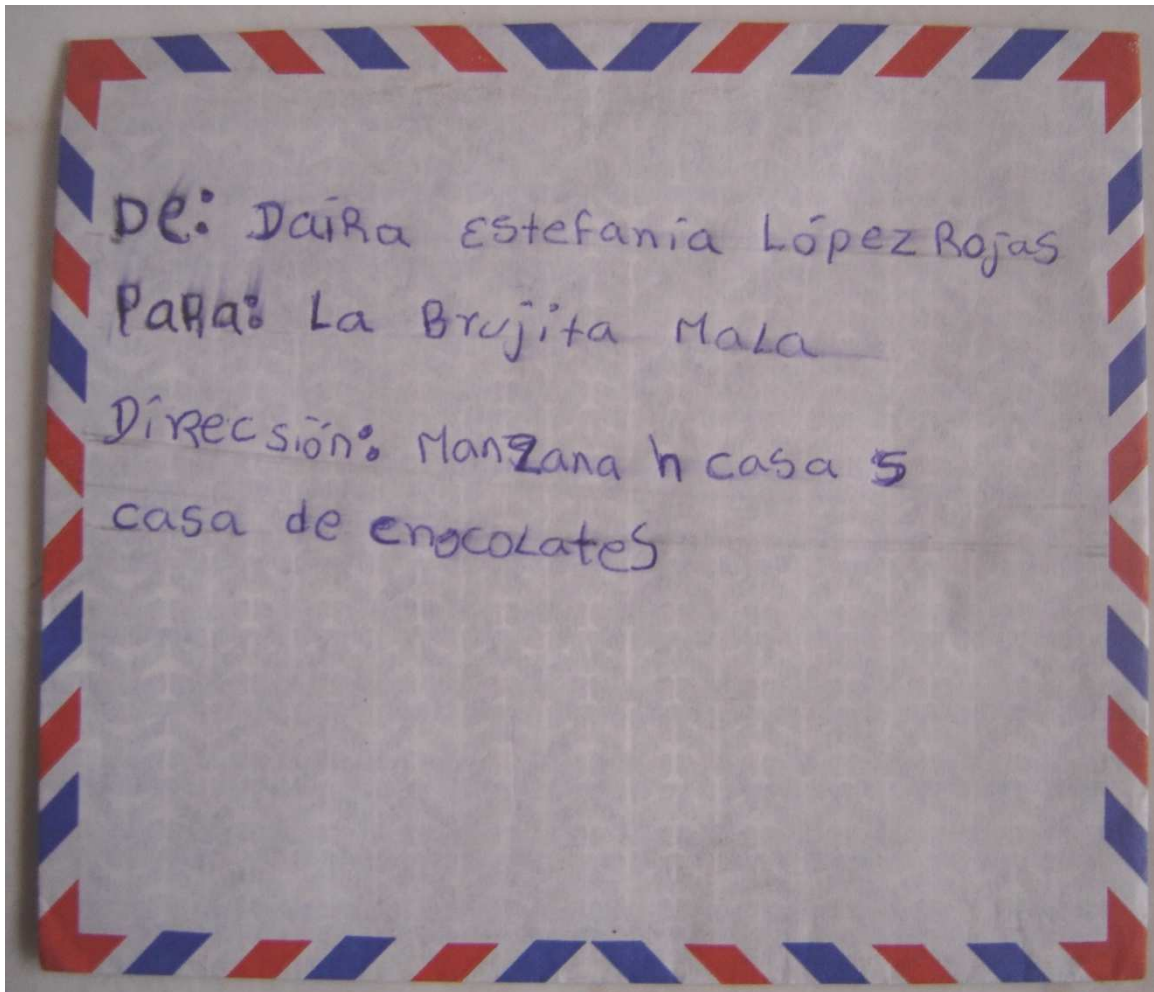 De: Daira Estefanía López Rojas
Para: La Brujita Mala
Direcsión: Manzana h casa 5
casa de chocolates